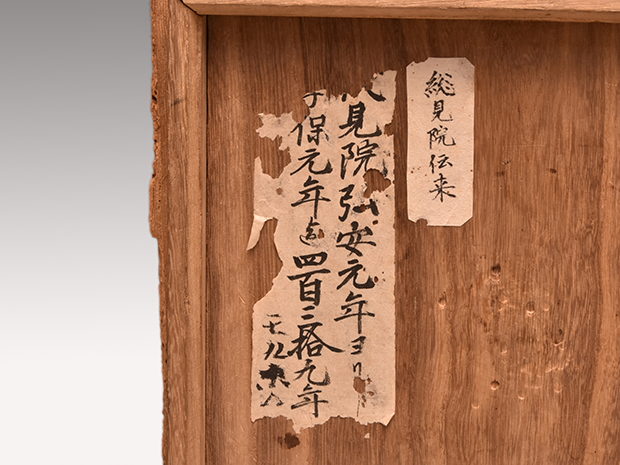 総見院伝来
見院弘安元年ヨリ
保元年迄四百三拾九年